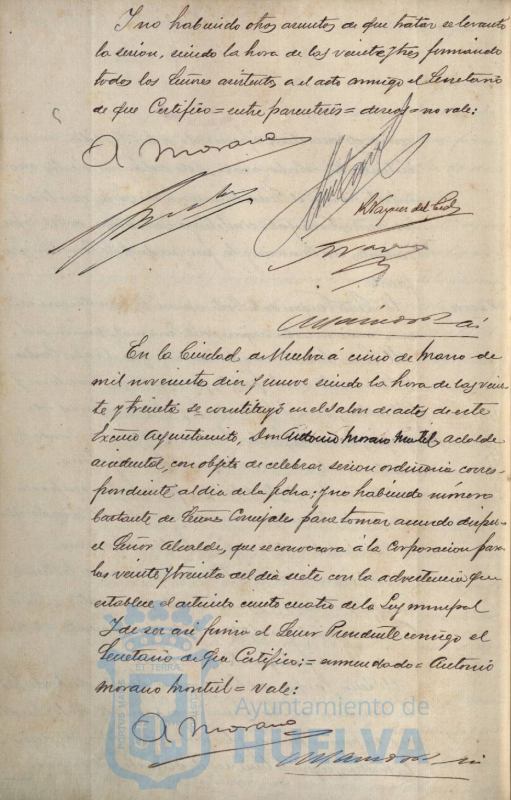 Y no habiendo otros asuntos de que tratar se levantó
la sesion, siendo la hora de las veinte y tres firmando
todos los Señores asistentes a el acto conmigo el Secretario
de que Certifico = entre parentesis = deseos = no vale:
A Morano
Vazquez del Cid
En la Ciudad de Huelva á cinco de Marzo de
mil novecientos diez y nueve siendo la hora de las vein-
te y treinta se constituyó en el Salon de actos de este
Excmo Ayuntamiento, Don Antonio Morano Montiel, alcalde
accidental, con objeto de celebrar sesion ordinaria corres-
pondiente al dia de la fecha; y no habiendo número
bastante de Señores Concejales para tomar acuerdo dispuso
el Señor Alcalde, que se convocara á la Corporacion para
las veinte y treinta del dia siete con la advertencia que
establece el articulo ciento cuatro de la Ley municipal
Y de ser asi firma el Señor Presidente conmigo el
Secretario de que Certifico: = enmendado = Antonio
Morano Montiel = Vale:
A Morano
Ayuntamiento de
HUELVA